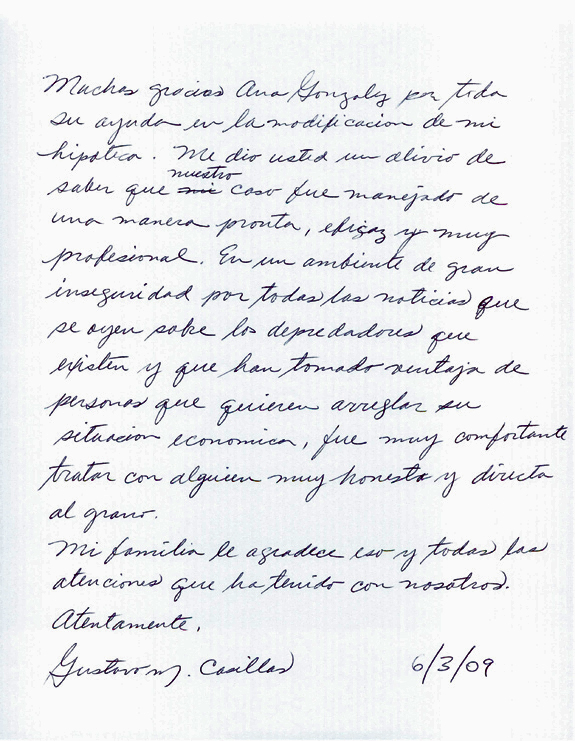 Muchas gracias Ana Gonzalez por toda
su ayuda en la modificacion de mi
hipoteca. Me dio usted un alivio de
nuestro
saber que mi caso fue manejado de
una manera pronta, eficaz y muy
profesional. En un ambiente de gran
inseguridad por todas las noticias que
se oyen sobre los depredadores que
existen y que han tomado ventaja de
personas que quieren arreglar su
situacion economica, fue muy comfortante
tratar con alguien muy honesta y directa
al grano.
Mi familia le agradece eso y todas las
atenciones que ha tenido con nosotros.
Atentamente,
Gustavo M. Casillas 6/3/09